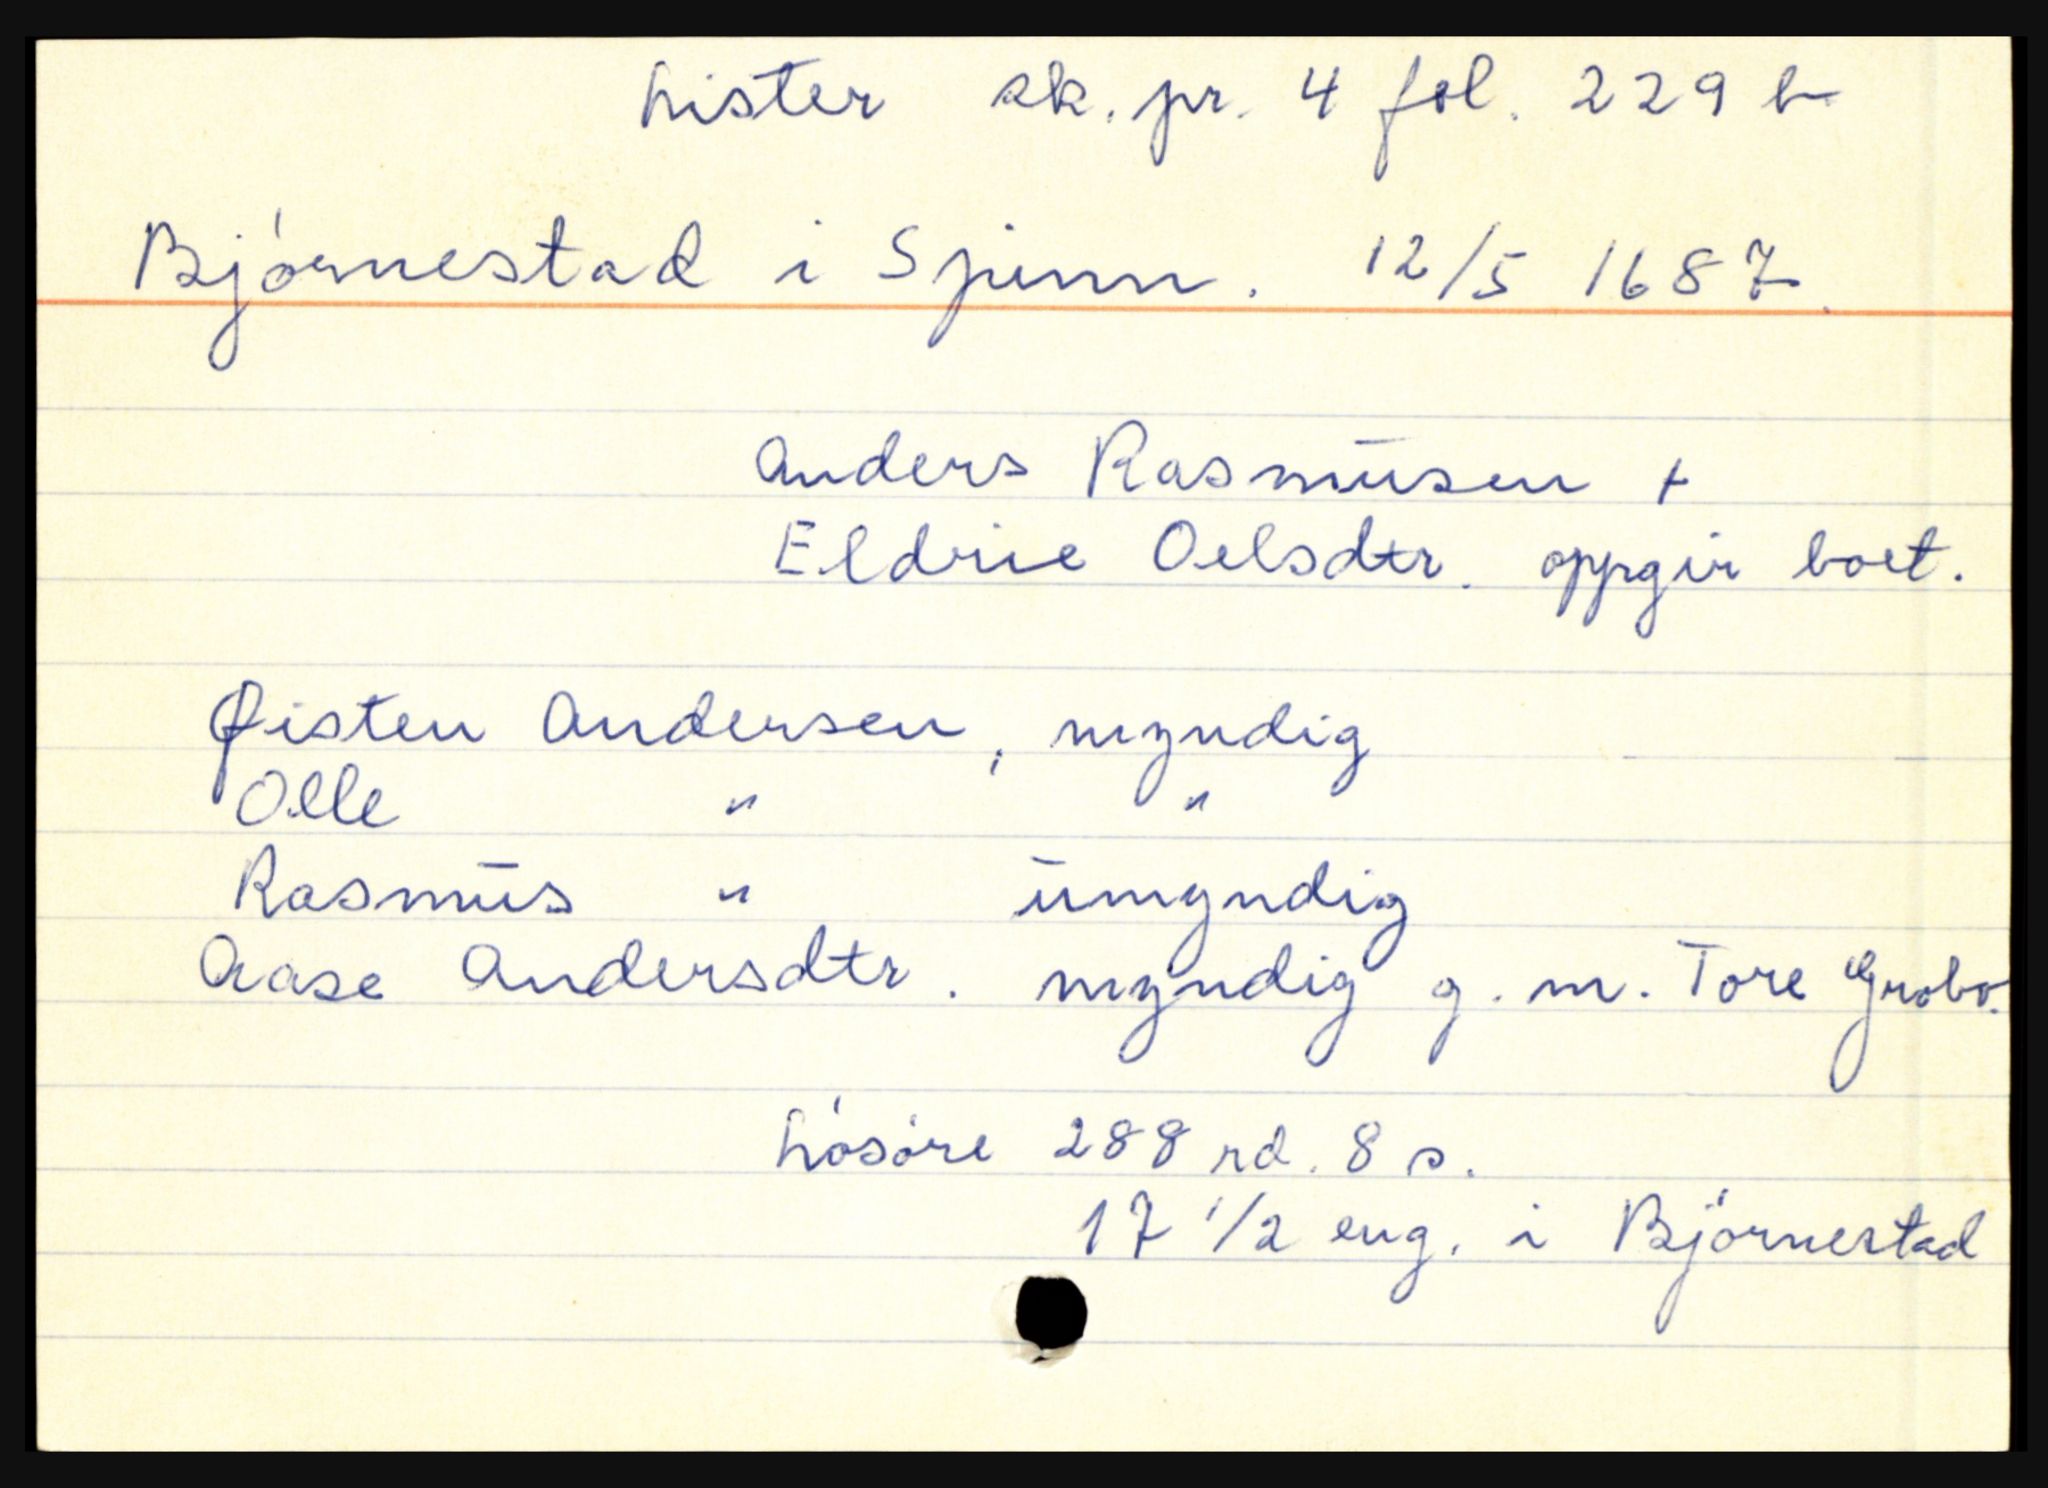 Lister sk. pr. 4 fol. 229 b
Bjørnestad i Sjunn. 12/5 1687.
Anders Rasmusen +
Eldrie Oelsdtr. oppgir boet.
Øisten Andersen, myndig
Olle " "
Rasmus " umyndig
Aase Andersdtr. myndig g. m. Tore Grobo.
Løsøre 288 rd. 8 s.
17 1/2 eng. i Bjørnestad